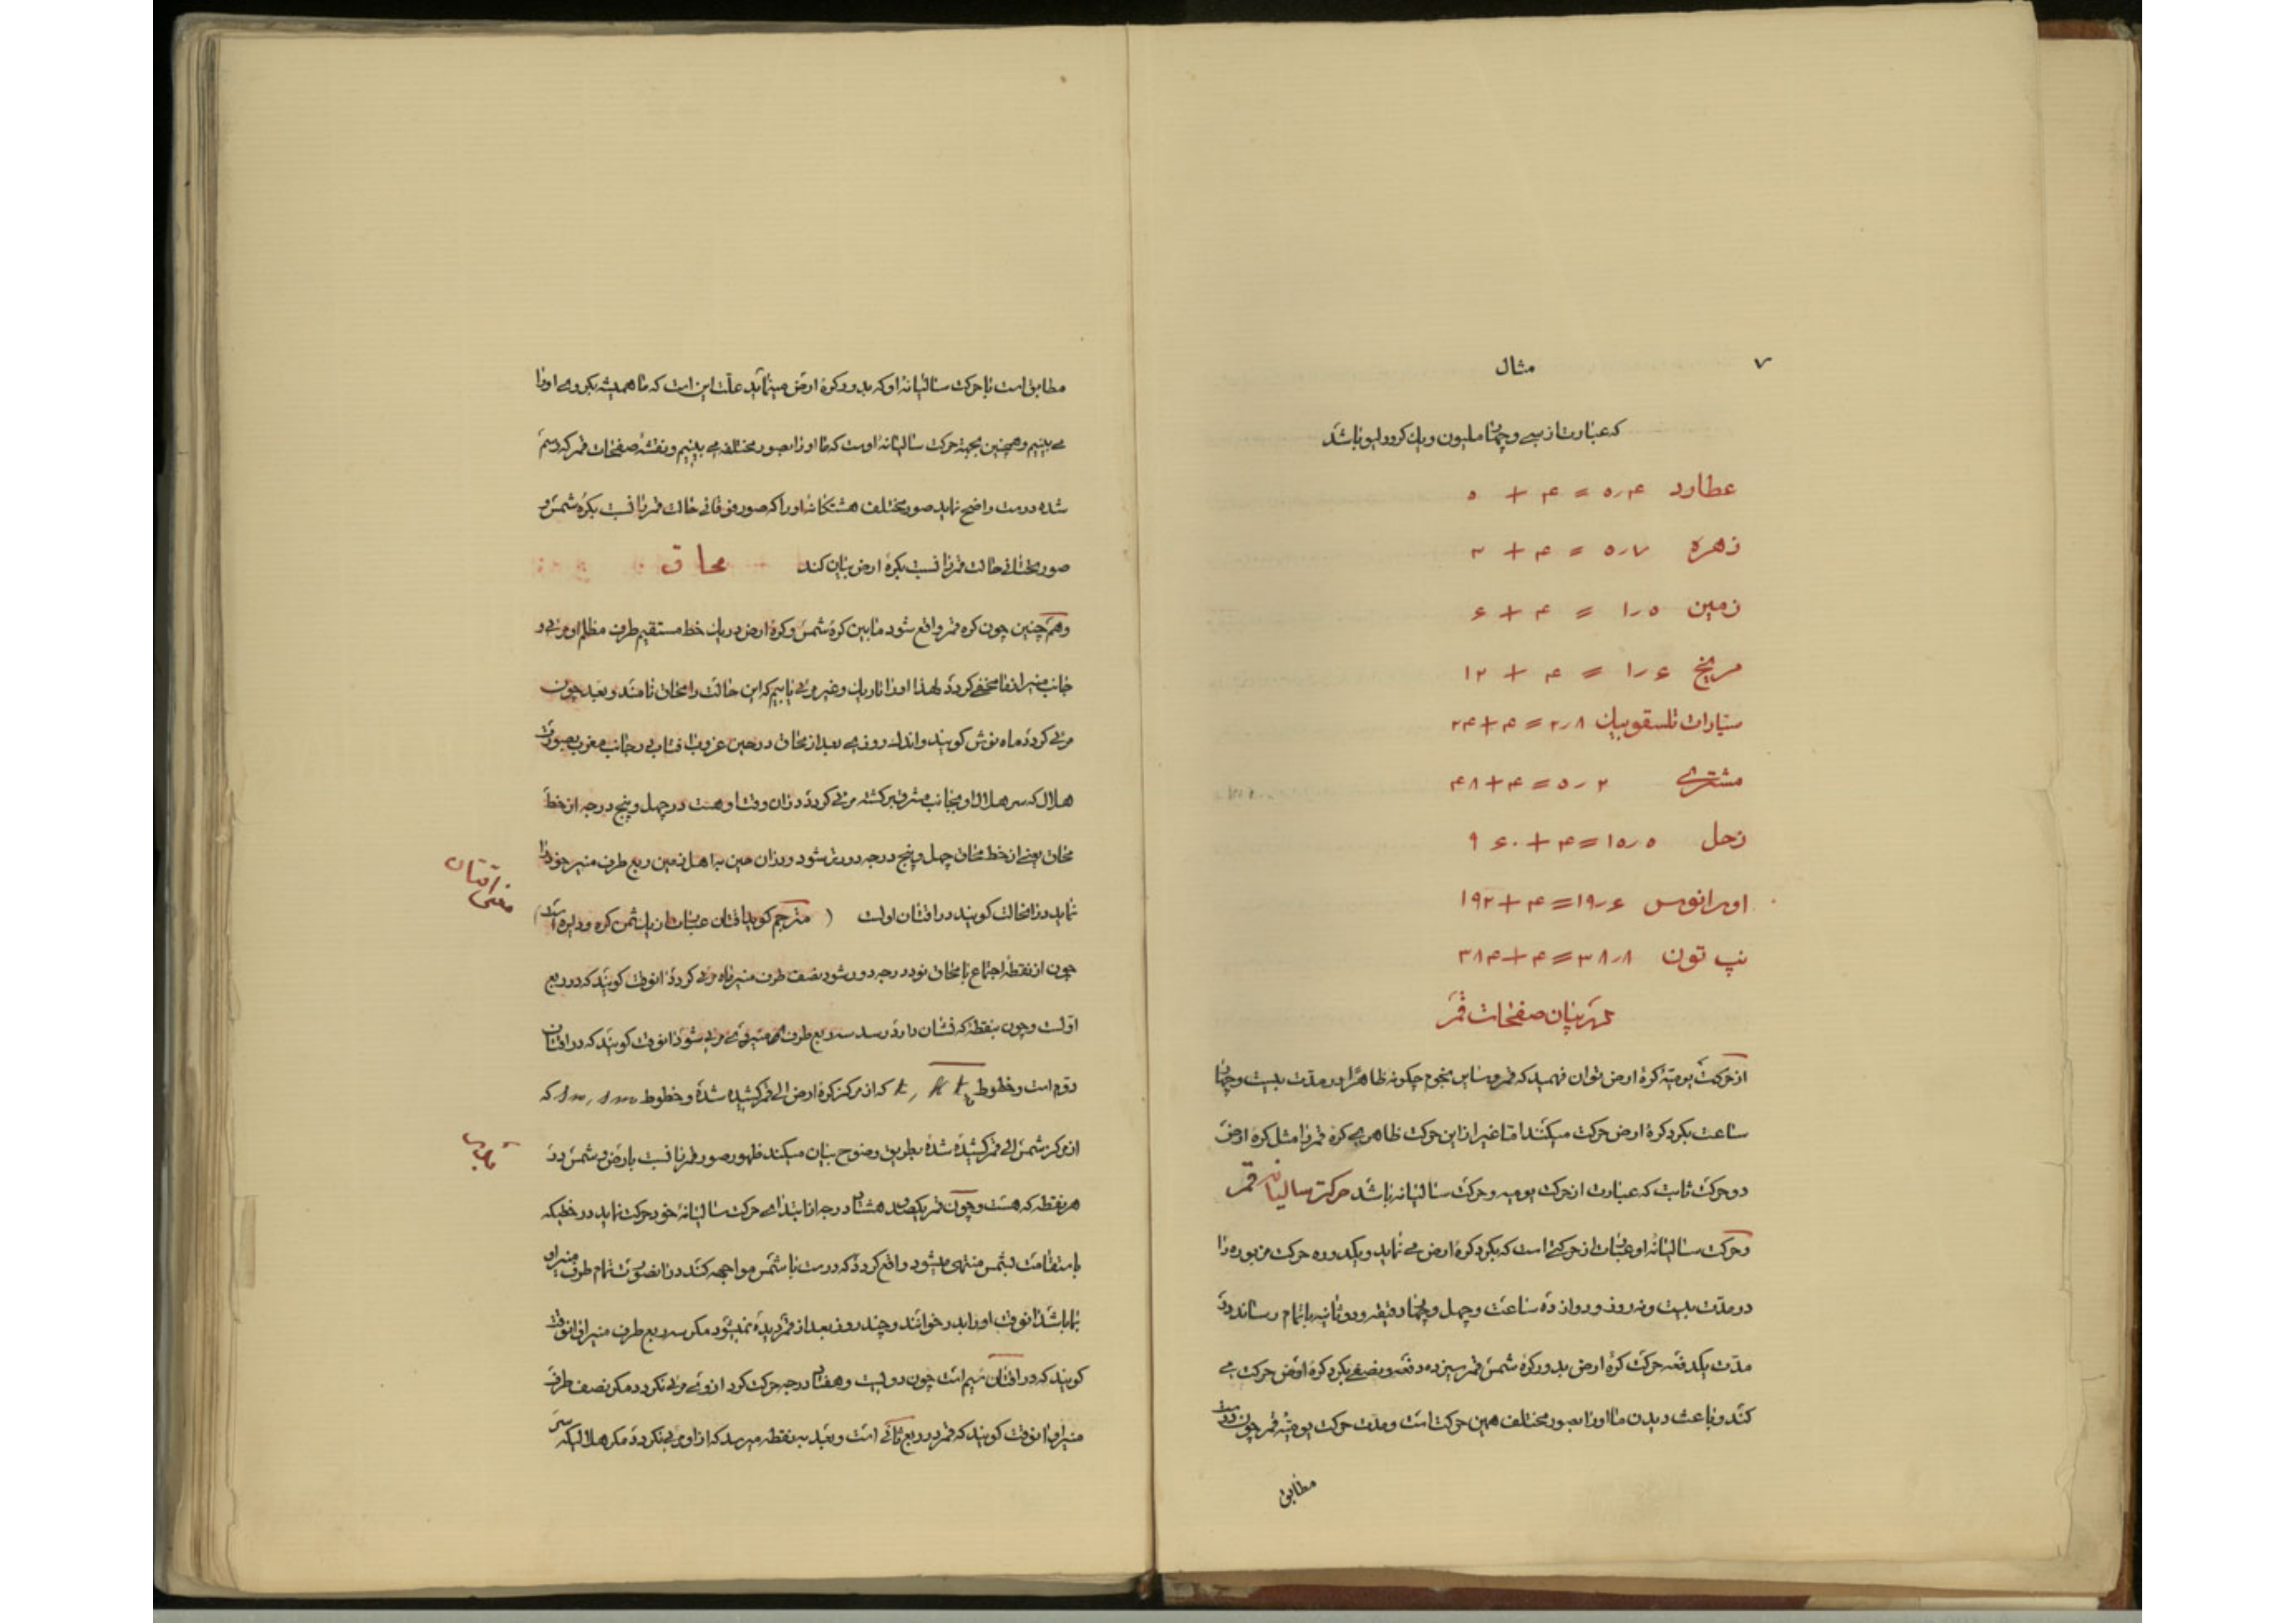 ۷
مثال
که عبارت از سی و چهار ملیون و یك کرور لیو باشد
عطارد ۰٫۴ = ۴ + ۰
زهره ۰٫۷ = ۴ + ۳
زمین ۱٫۰ = ۴ + ۶
مریخ ۱٫۶ = ۴ + ۱۲
سیّارات تلسقوپیك ۲٫۸ = ۴ + ۲۴
مشتری ۵٫۲ = ۴ + ۴۸
زحل ۱۰٫۰ = ۴ + ۹۶
اورانوس ۱۹٫۶ = ۴ + ۱۹۲
نپ تون ۳۸٫۸ = ۴ + ۳۸۴
در بیان صفحات قمر
از حرکت یومیّهٔ کرهٔ ارض توان فهمید که قمر و سایر نجوم چکونه ظاهرًا در مدّت بیست و چهار
ساعت بکرد کرهٔ ارض حرکت میکنند امّا غیر از این حرکت ظاهری کره قمر را مثل کره ارض
دو حرکت ثابت که عبارت از حرکت یومیه و حرکت سالیانه باشد حرکت سالیانه قمر
و حرکت سالیانهٔ او عبارت از حرکتی است که بکرد کرهٔ ارض می نماید و یکدوره حرکت مزبوره را
در مدّت بیست و نه روز و دوازده ساعت و چهل و چهار دقیقه و دو ثانیه باتمام رساند در
مدّت یکدفعه حرکت کرهٔ ارض بدور کرهٔ شمس قمر سیزده دفعه و نصفی بکرد کرهٔ ارض حرکت می
کند و باعث دیدن ما او را بصور مختلف همین حرکت است و مدّت حرکت یومیّهٔ قمر چون درست
مطابق
مطابق است با حرکت سالیانهٔ او که بدور کرهٔ ارض مینماید علّت این است که ما همیشه یکروی او را
می بینیم و همچنین بجهة حرکت سالیانهٔ اوست که ما او را بصور مختلفه می بینیم و نقشهٔ صفحات قمر که رسم
شده درست واضح نماید صور مختلف هشتکانهٔ او را که صور فوقانی حالت قمر با نسبت بکرهٔ شمس و
صور تحتانی حالت قمر با نسبت بکرهٔ ارض بیان کند محاق
و همچنین چون کره قمر واقع شود مابین کرهٔ شمس و کرهٔ ارض در یك خط مستقیم طرف مظلم او مرئی و
جانب منیر از ما مخفی کردد لهذا او را تاریك و غیر مرئی یابیم که این حالت را محاق نامند و بعد چون
مرئی کردد ماه نوش کویند و اندك روزی بعد از محاق در حین غروب آفتاب در جانب مغرب بصورت
هلال که سر هلال او بجانب مشرق برکشته مرئی کردد در آن وقت او هست در چهل و پنج درجه از خط
محاق یعنی از خط محاق چهل و پنج درجه دورتر شود و در آن حین به اهل زمین ربع طرف منیر خود را
نماید در آنحالت کویند در اقتان اولست ( مترجم کوید اقتان عبارت از یك ثمن کره و دایره است )
معنی اقتان
چون از نقطهٔ اجتماع یا محاق نود درجه دور شود نصف طرف منیر ماه مرئی کردد آنوقت کویند که در ربع
اوّلست و چون بنقطه که نشان دارد رسد سه ربع طرف منیر وی مرئی شود آنوقت کویند که در اقتان
دوّم است و خطوط که از مرکز کرهٔ ارض الی قمر کشیده شده و خطوط که
از مرکز شمس الی قمر کشیده شده بطریق وضوح بیان میکند ظهور صور قمر با نسبت بارض و شمس در
هر نقطه که هست و چون قمر یکصد و هشتاد درجه از ابتدای حرکت سالیانهٔ خود حرکت نماید در خطیکه
باستقامت بشمس منتهی میشود واقع کردد که درست با شمس مواجهه کند در آنصورت تمام طرف منیر او
بما باشد آنوقت او را بدر خوانند و چند روز بعد از قمر دیده نمیشود مکر سه ربع طرف منیر او آنوقت
کویند که در اقتان سیم است چون دویست و هفتاد درجه حرکت کرد از وی مرئی نکردد مکر نصف طرف
منیر او آنوقت کویند که قمر در ربع ثانی است و بعد به نقطه میرسد که از او مرئی نکردد مکر هلالیکه سر